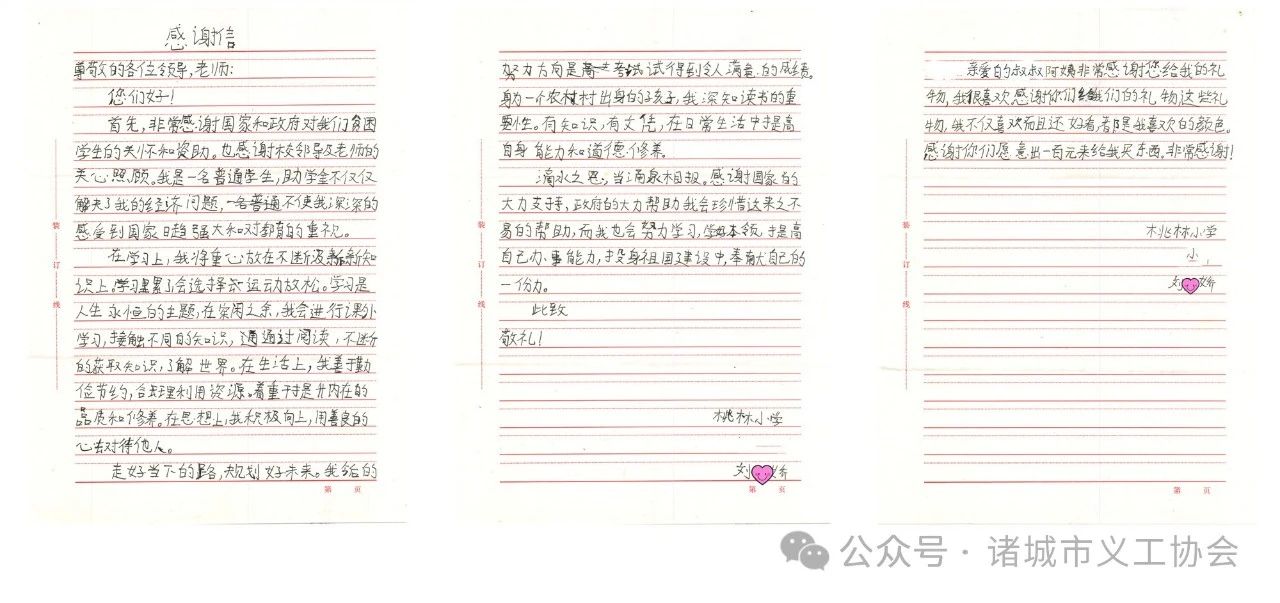 感谢信
尊敬的各位领导,老师:
您们好!
首先,非常感谢国家和政府对我们贫困
学生的关怀和资助。也感谢校领导及老师的
关心照顾。我是一名普通学生,助学金不仅仅
解决了我的经济问题,一名普通不使我深深的
感受到国家日趋强大和对教育的重视。
在学习上,我将重心放在不断汲新知
识上。学习累了会选择运动放松。学习是
人生永恒的主题,在空闲之余,我会进行课外
学习,接触不同的知识,通过阅读,不断
的获取知识,了解世界。在生活上,我善于勤
俭节约,合理利用资源。着重于提升内在的
品质和修养。在思想上,我积极向上,用善良的
心去对待他人。
走好当下的路,规划好未来。我今后的
努力方向是考试得到令人满意的成绩。
身为一个农村出身的孩子,我深知读书的重
要性。有知识,有文凭,在日常生活中提高
自身能力和道德修养。
滴水之恩,当涌泉相报。感谢国家的
大力支持,政府的大力帮助我会珍惜这来之不
易的帮助,而我也会努力学习,学好本领,提高
自己办事能力,投身祖国建设中,奉献自己的
一份力。
此致
敬礼!
桃林小学
刘 娇
亲爱的叔叔阿姨非常感谢您给我的礼
物,我很喜欢感谢你们给我们的礼物,这些礼
物,我不仅喜欢而且还好看,都是我喜欢的颜色。
感谢你们愿意出一百元来给我买东西。非常感谢!
桃林小学
刘 娇
装订线
第 页
装订线
第 页
装订线
第 页
公众号·诸城市义工协会